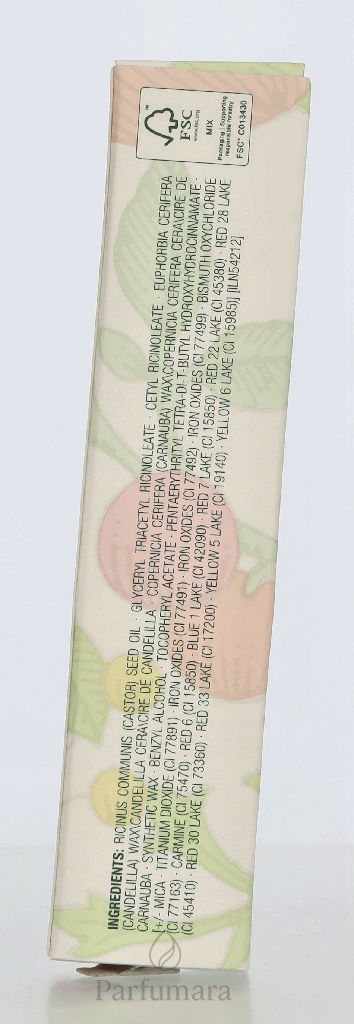 FSC
www.fsc.org
MIX
Packaging | Supporting
responsible forestry
FSC™ C013430
INGREDIENTS: RICINUS COMMUNIS (CASTOR) SEED OIL · GLYCERYL TRIACETYL RICINOLEATE · CETYL RICINOLEATE · EUPHORBIA CERIFERA
(CANDELILLA) WAX\CANDELILLA CERA\CIRE DE CANDELILLA · COPERNICIA CERIFERA (CARNAUBA) WAX\COPERNICIA CERIFERA CERA\CIRE DE
CARNAUBA · SYNTHETIC WAX · BENZYL ALCOHOL · TOCOPHERYL ACETATE · PENTAERYTHRITYL TETRA-DI-T-BUTYL HYDROXYHYDROCINNAMATE ·
[+/- MICA · TITANIUM DIOXIDE (CI 77891) · IRON OXIDES (CI 77491) · IRON OXIDES (CI 77492) · IRON OXIDES (CI 77499) · BISMUTH OXYCHLORIDE
(CI 77163) · CARMINE (CI 75470) · RED 6 (CI 15850) · BLUE 1 LAKE (CI 42090) · RED 7 LAKE (CI 15850) · RED 22 LAKE (CI 45380) · RED 28 LAKE
(CI 45410) · RED 30 LAKE (CI 73360) · RED 33 LAKE (CI 17200) · YELLOW 5 LAKE (CI 19140) · YELLOW 6 LAKE (CI 15985)] [ILN54212]
Parfumara